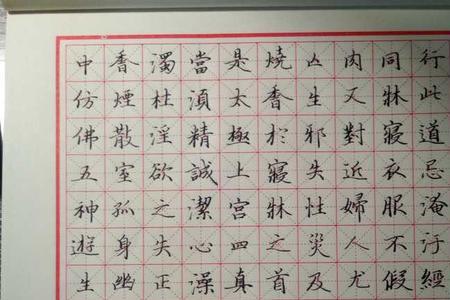 行此道忌淹汙經
同牀寢衣服不假
肉又對近婦人尤
亾生邪失性災及
燒香於寢牀之首
是太極上宮四真
當湏精誠潔心澡
濁柱淫欲之失正
香煙散室孤身幽
中仿佛五神遊生